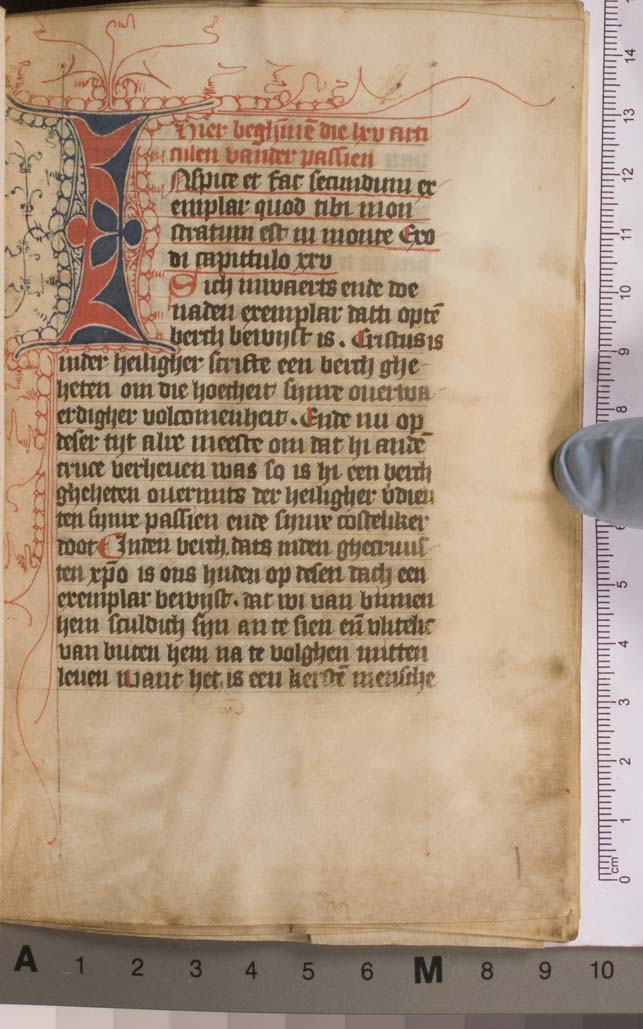 Hier beghīnē die lxv arti
culen vander passien
INspice et fac secundum ex
emplar quod tibi mon
stratum est in monte Exo
di capittulo xxv
Sich inwaerts ende doe
naden exemplar datti optē
berch bewijst is. Cristus is
inder heiligher scrifte een berch ghe
heten om die hoecheit sijnre ouerwa
erdigher volcomenheit. Ende nu op
deser tijt alre meeste om dat hi andē
cruce verheuen was so is hi een berch
gheheten ouermits der heiligher v̄dien
ten sijnre passien ende sijnre costeliker
doot Inden berch. dats inden ghecruus
ten xp̄o is ons huden op desen dach een
exemplar bewijst. dat wi van binnen
hem sculdich sijn an te sien eñ vlitelic
van buten hem na te volghen mitten
leuen want het is een kerstē mensche
14
13
12
11
10
9
8
6
5
4
3
2
1
0
cm
A 1 2 3 4 5 6 M 8 9 10